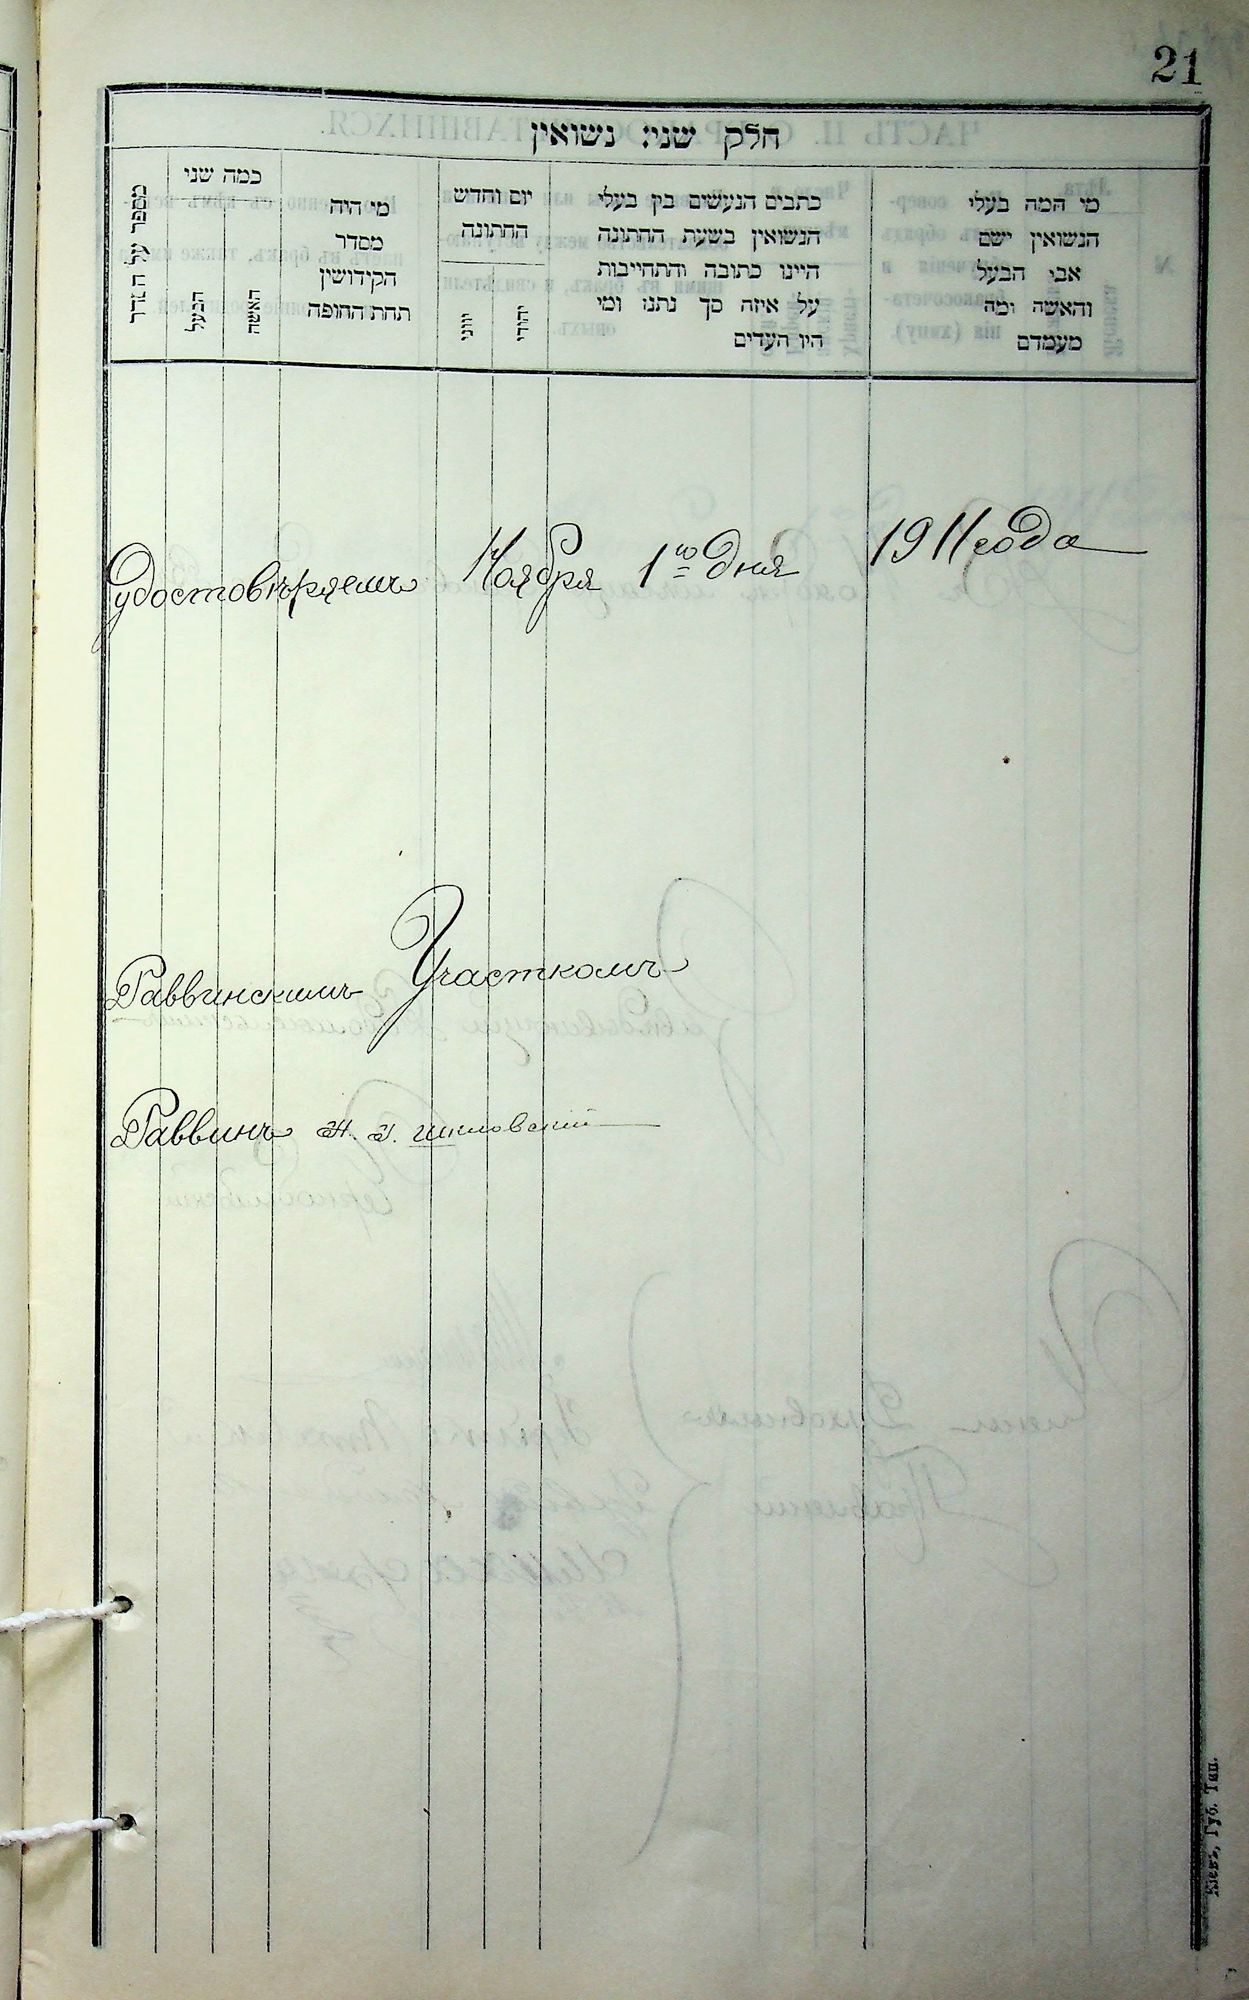 21
חלק שני: נשואין
מספר על הסדר
כמה שני
הבעל
האשה
מי היה
מסדר
הקידושין
תחת החופה
יום וחדש
החתונה
יוני
יהודי
כתבים הנעשים בין בעלי
הנשואין בשעת החתונה
היינו כתובה והתחייבות
על איזה סך נתנו ומי
היו העדים
מי המה בעלי
הנשואין ושם
אבי הבעל
והאשה ומה
מעמדם
удостовѣряемъ Ноября 1го дня 1911 года
Раввинскимъ Участкомъ
Раввинъ
Кіевъ, Губ. Тип.